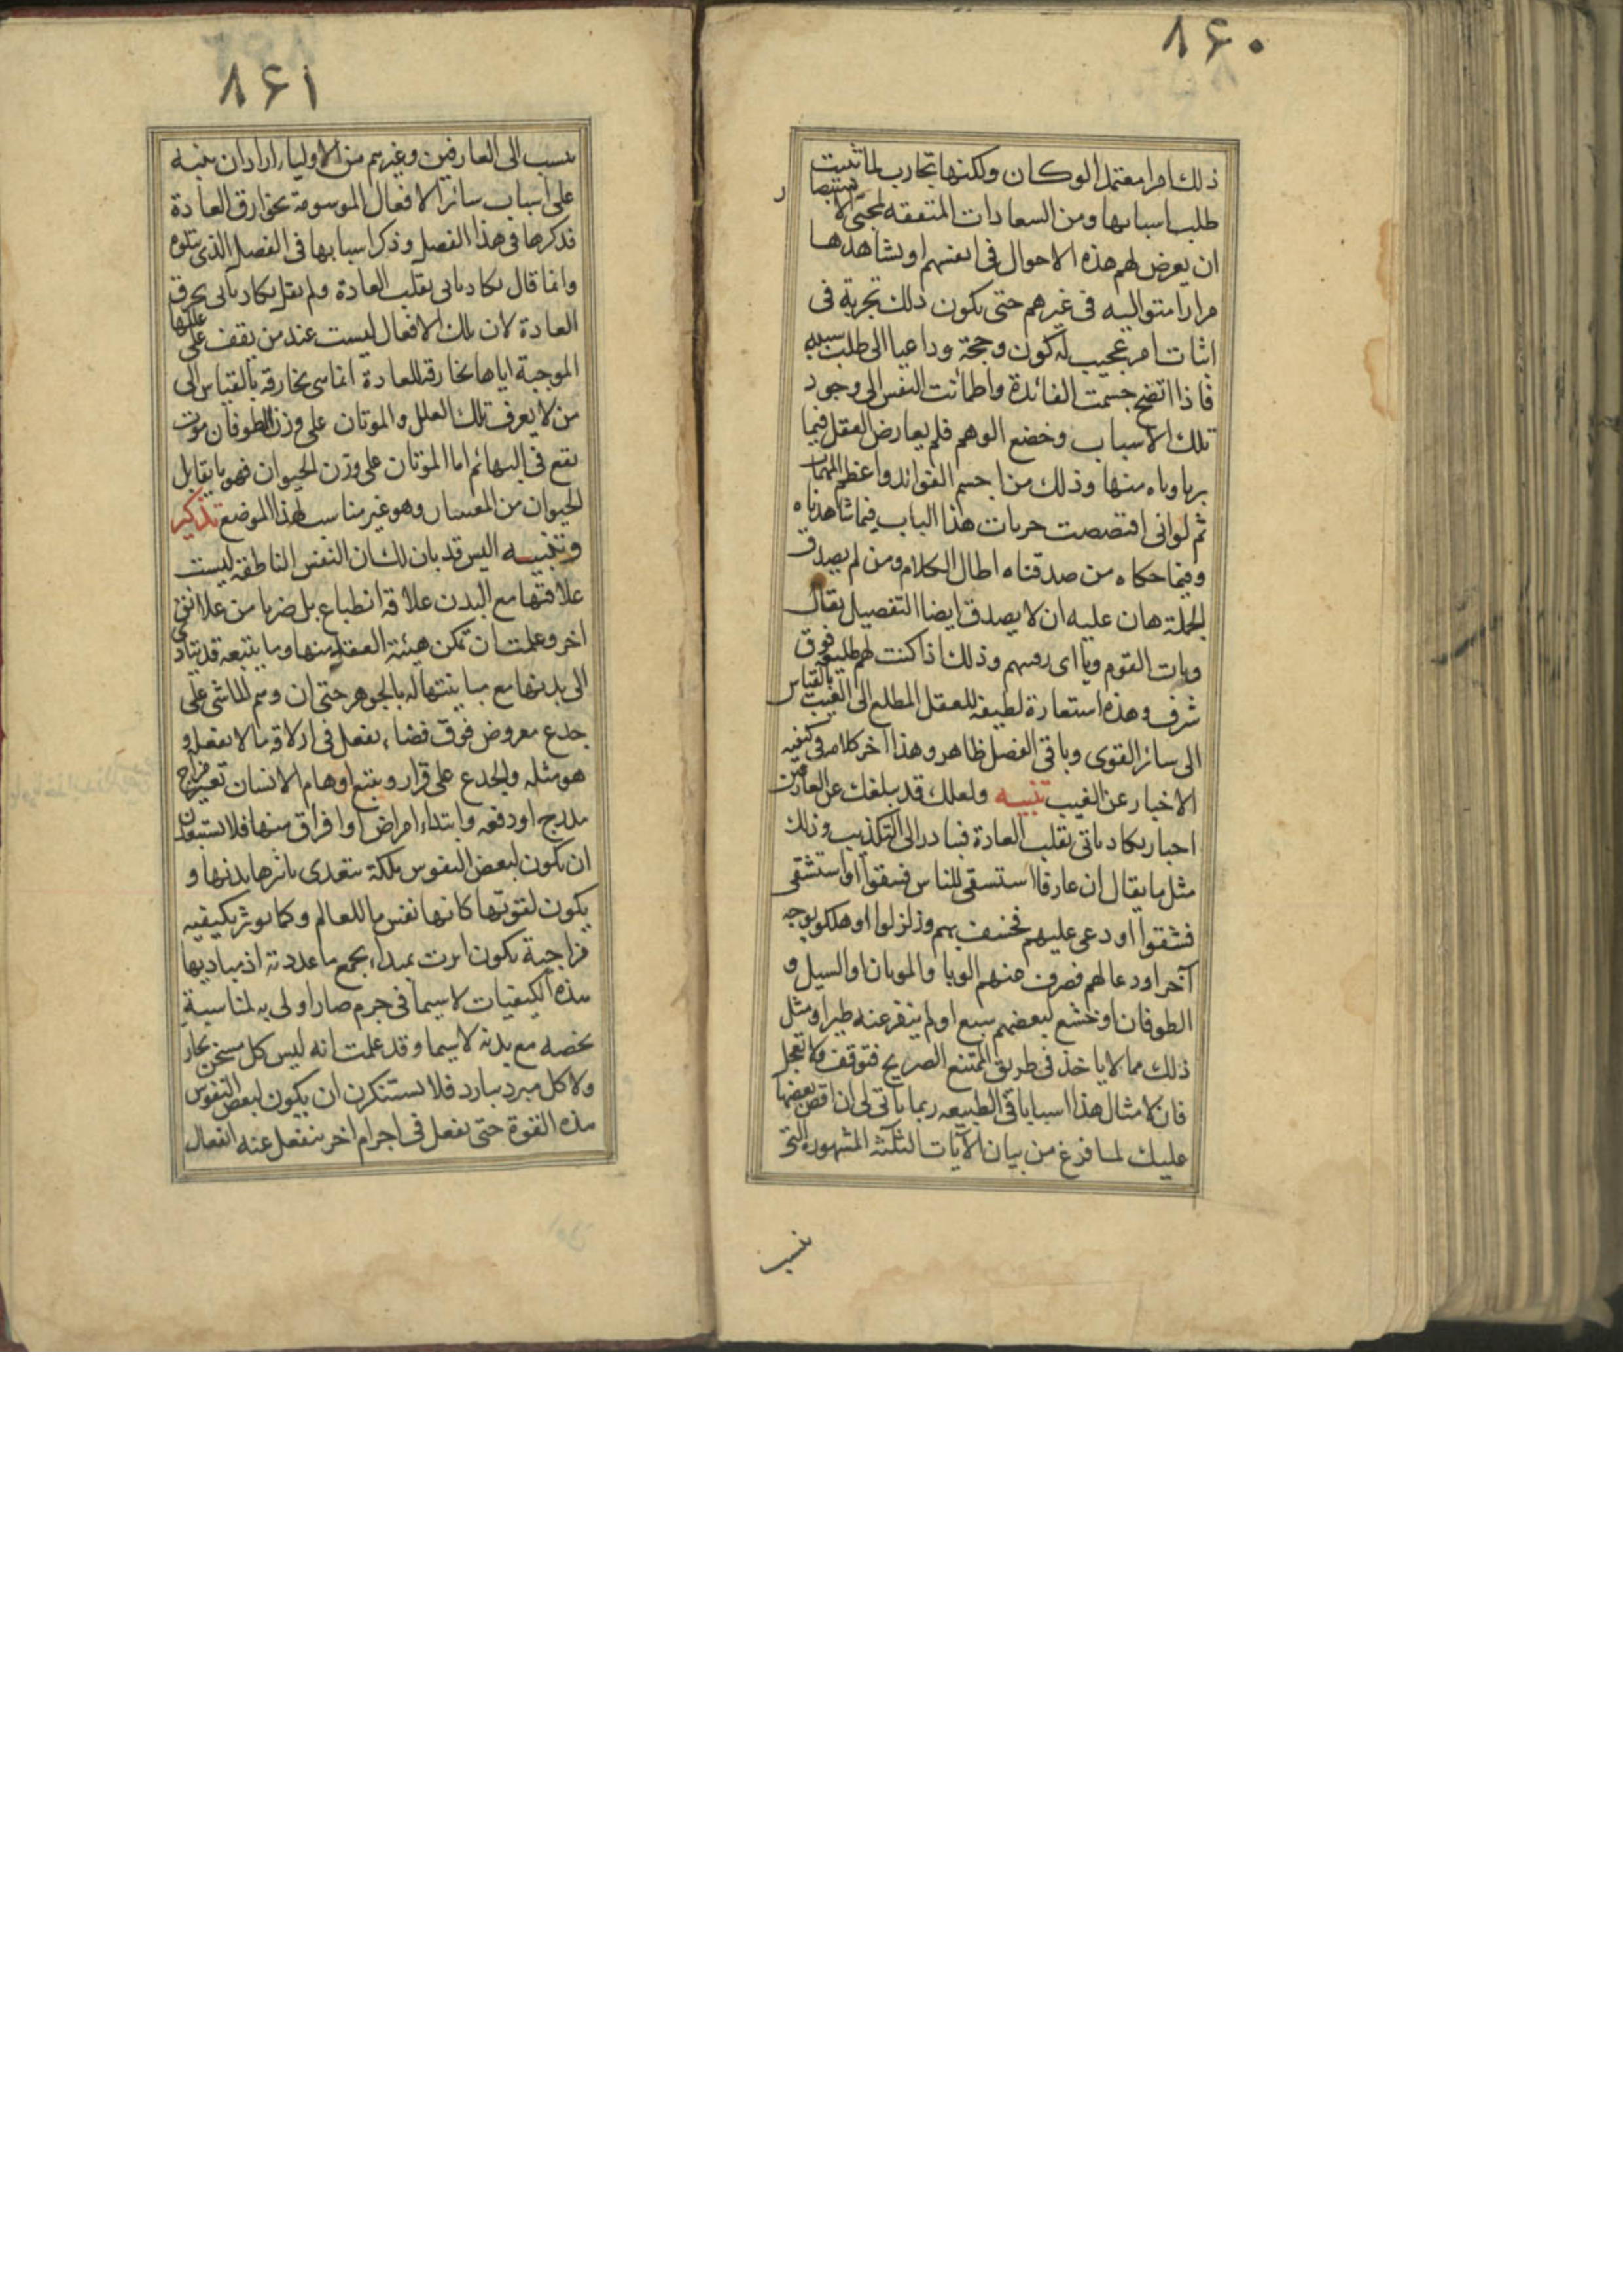 ۸۶۰
ذلك امرا معتمدا لو كان ولكنها تجارب لما ثبتت
طلب اسبابها ومن السعادات المتفقه لمحبى الاستبصار
ان يعرض لهم هذه الاحوال فى انفسهم او يشاهدها
مرارا متواليه فى غيرهم حتى يكون ذلك تجربة فى
اثبات امر عجيب له كون وحجة وداعيا الى طلب سببه
فاذا اتضح جسمت الفائدة واطمأنت النفس الى وجود
تلك الاسباب وخضع الوهم فلم يعارض العقل فيما
يرباوباه منها وذلك من اجسم الفوائد واعظم المهمات
ثم لو انى اقتصصت جزيات هذا الباب فيما شاهدناه
وفيما حكاه من صدقناه اطال الكلام ومن لم يصدق
الجملة هان عليه ان لا يصدق ايضا التفصيل يقال
وبات القوم وباى ربهم وذلك اذا كنت لهم طليعه فوق
شرف وهذه استعارة لطيفه للعقل المطلع الى الغيب بالقياس
الى سائر القوى وباقى الفصل ظاهر وهذا آخر كلامه فى كيفيه
الاخبار عن الغيب تنبيه ولعلك قد يبلغك عن العارفين
اخبار يكاد ياتى بقلب العادة فتبادر الى التكذيب وذلك
مثل ما يقال ان عارفا استسقى للناس فسقوا او استشفى
فشفوا او دعى عليهم فخسف بهم وزلزلوا او هلكوا بوجه
آخر او دعا لهم فصرف عنهم الوبا والموتان او السيل و
الطوفان او خشع لبعضهم سبع او لم ينفر عنه طير او مثل
ذلك مما لا ياخذ فى طريق الممتنع الصريح فتوقف ولا تعجل
فان لامثال هذا اسبابا فى الطبيعه ربما ياتى لى ان اقص بعضها
عليك لما فرغ من بيان الآيات الثلثة المشهورة التى
ينسب
۸۶۱
ينسب الى العارفين وغيرهم من الاولياء اراد ان ينبه
على اسباب سائر الافعال الموسومة بخوارق العادة
فذكرها فى هذا الفصل وذكر اسبابها فى الفصل الذى يتلوه
وانما قال يكاد ياتى بقلب العادة ولم يقل يكاد ياتى بخرق
العادة لان تلك الافعال ليست عند من يقف على عللها
الموجبة اياها بخارقة للعادة انما سى بخارقه بالقياس الى
من لا يعرف تلك العلل والموتان على وزن الطوفان موت
يقع فى البهائم اما الموتان على وزن الحيوان فهو ما يقابل
الحيوان من المقتنيات وهو غير مناسب لهذا الموضع تذكير
وتنبيه اليس قد بان لك ان النفس الناطقة ليست
علاقتها مع البدن علاقة انطباع بل ضربا من علائق
اخر وعلمت ان تمكن هيئة العقد منها وما يتبعه قد يتادى
الى بدنها مع مباينتها له بالجوهر حتى ان وهم الماشى على
جذع معروض فوق فضاء يفعل فى ازلاقه ما لا يفعله و
هو مثله والجذع على قرار ويتبع اوهام الانسان تغير مزاج
مدرج او دفعه وابتداء امراض او افراق منها فلا تستبعدن
ان يكون لبعض النفوس ملكة يتعدى تاثيرها بدنها و
يكون لقوتها كانها نفس ما للعالم وكما يوثر بكيفيه
مزاجية يكون اثرت بمبداء بجميع ما عددته اذ مباديها
هذه الكيفيات لا سيما فى جرم صار اولى به لمناسبة
يخصه مع بدنه لا سيما وقد علمت انه ليس كل مسخن بحار
ولا كل مبرد ببارد فلا تستنكرن ان يكون لبعض النفوس
هذه القوة حتى يفعل فى اجرام اخر ينفعل عنه انفعال